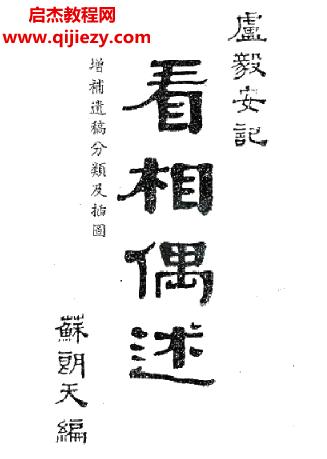 启杰教程网
www.qijiezy.com
盧毅安記
看相偶述
增補遺稿分類及插圖
蘇朗天編